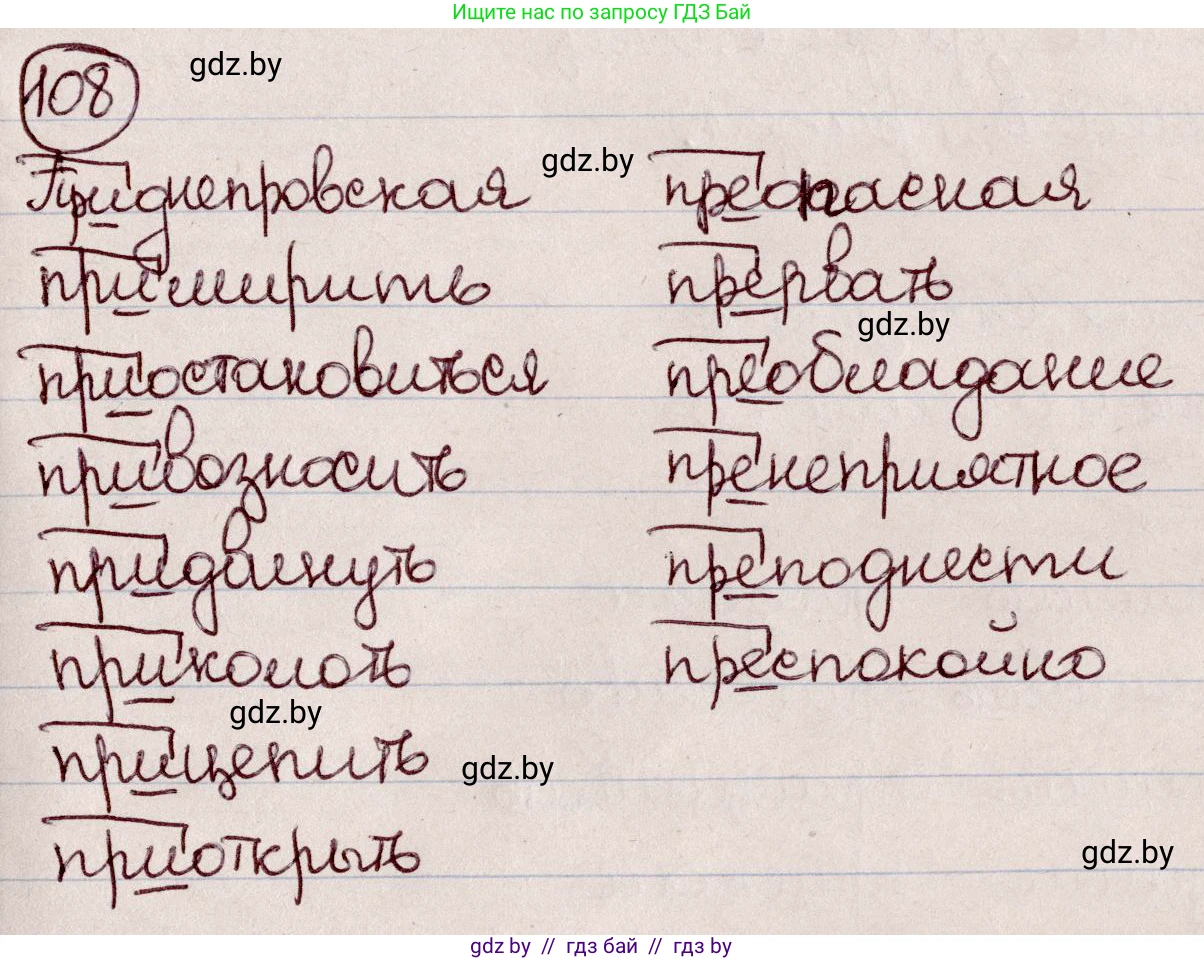 Ищите нас по запросу ГДЗ Бай
108
gdz.by
Приднепровская
gdz.by
преопасная
примирить
прервать
gdz.by
приостановиться
преобладание
привозносить
пренеприятное
придвинуть
преподнести
приколоть
преспокойно
gdz.by
прицепить
gdz.by
приоткрыть
gdz.by
gdz by // гдз бай // гдз by